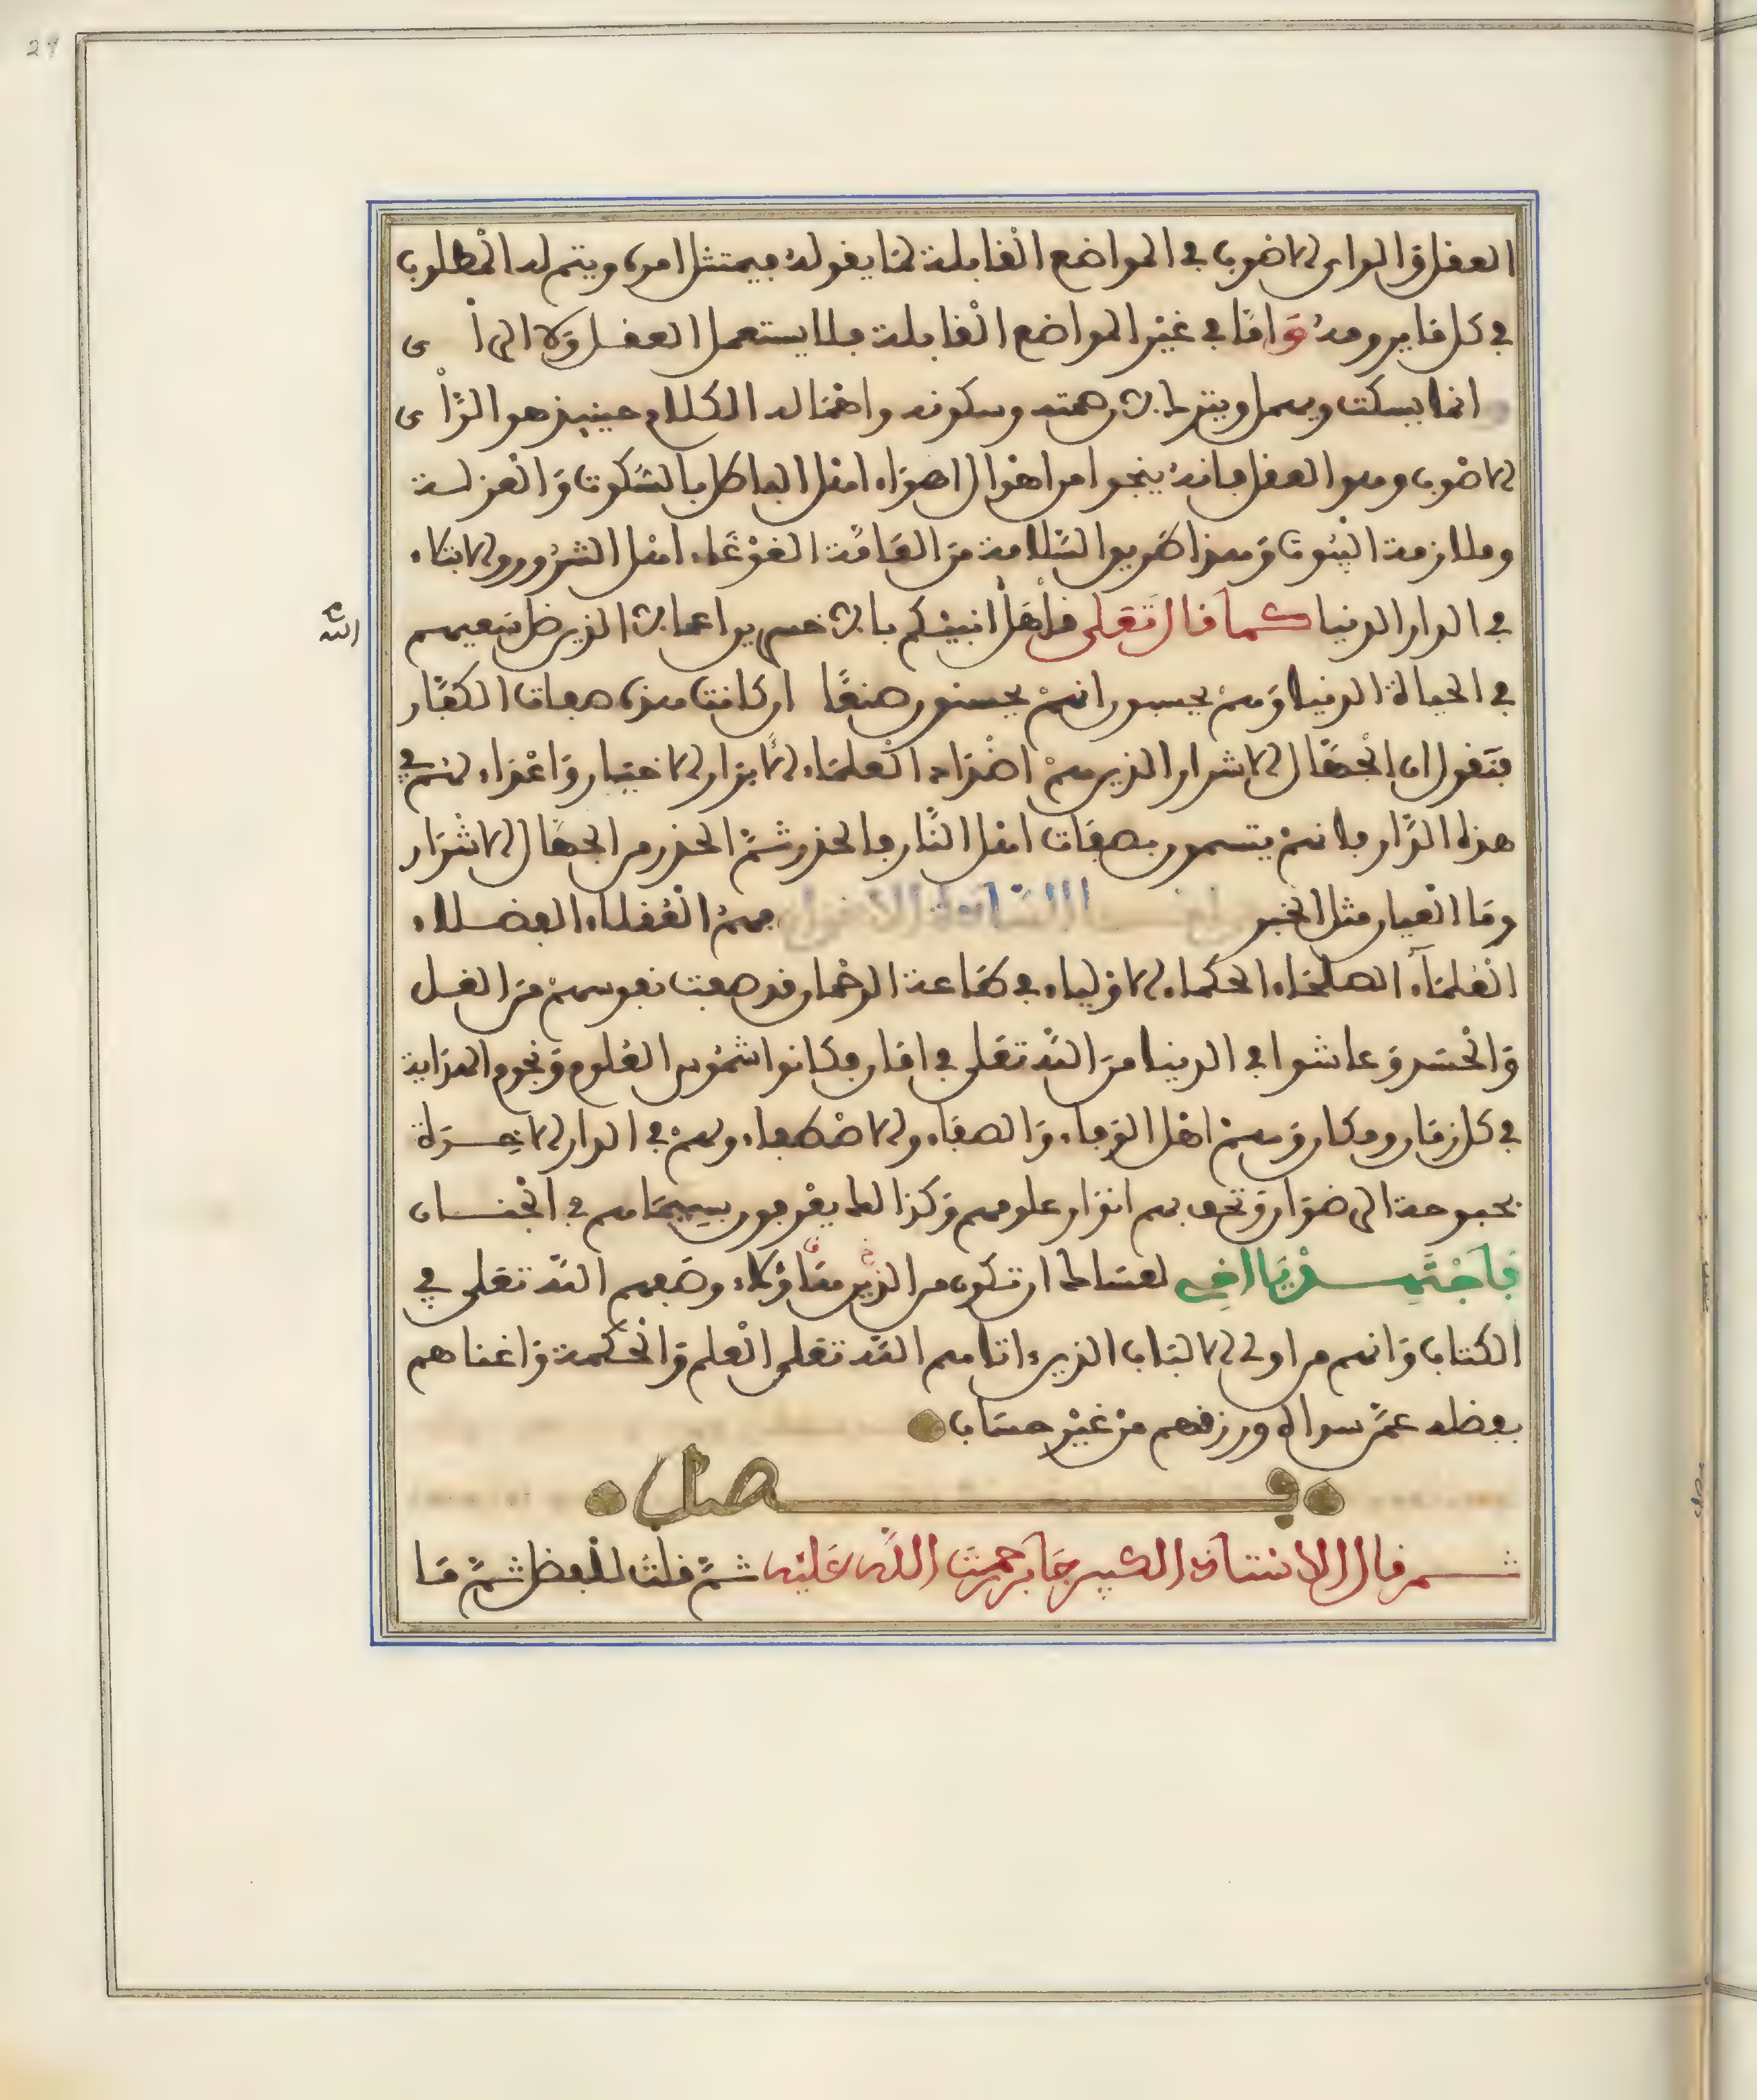 العقل والراي الاصوب في المواضع القابلة لما يقوله فيمتثل امره ويتم له المطلوب
في كل ما يرومه واما في غير المواضع القابلة فلا يستعمل العقل ولا الرأى
انما يسكت ويهمل وينزل همته وسكونه واهماله الكلام حينيذ هو الرأى
الاصوب وهو العقل فانه ينجو من اهوال اهواء اهل الباطل بالسكوت والعزلة
وملازمة البيوت وهذا طريق السلامة من العامة الغوغاء اهل الشرور والابتلاء
في الدار الدنيا كما قال تعلى قل هل انبئكم بالاخسرين اعمالا الذين ضل سعيهم
في الحياة الدنيا وهم يحسبون انهم يحسنون صنعا ان كانت هذه صفات الكفار
فنقول ان الجهال الاشرار الذين هم اضداد العلماء الابرار الاخيار واعداء لهم في
هذه الدار فلانهم يتسمون بصفات اهل النار فالحذر ثم الحذر من الجهال الاشرار
وما العيار مثل الخبر واما السادة الاخيار فهم العقلاء الفضلاء
العلماء الصلحاء الحكماء الاولياء في طاعة الرحمان قد صفت نفوسهم من الغل
والحسد وعاشوا في الدنيا من الله تعلى في امان فكانوا شموس العلوم ونجوم الهداية
في كل زمان ومكان وهم اهل الوفاء والصفاء والاصطفاء ولهم في الدار الاخرة
بحبوحة الرضوان وتحف بهم انوار علومهم وكذا لما يعرفون بسيماهم في الجنان
فاجتهد يا اخي لعساك ان تكون من الذين هاؤلاء وصفهم الله تعلى في
الكتاب وانهم من اولي الالباب الذين ءاتاهم الله تعلى العلم والحكمة واغناهم
بفضله عمن سواه ورزقهم من غير حساب
فصل
ثم قال الاستاذ الكبير جابر رحمت الله عليه ثم قلت للبعض ثم ما
الله